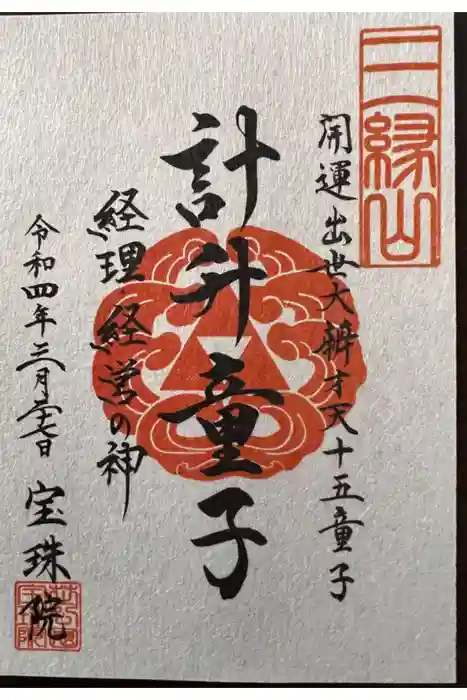 三縁山
開運出世大辨才天十五童子
計升童子
経理経営の神
令和四年三月二十七日 宝珠院